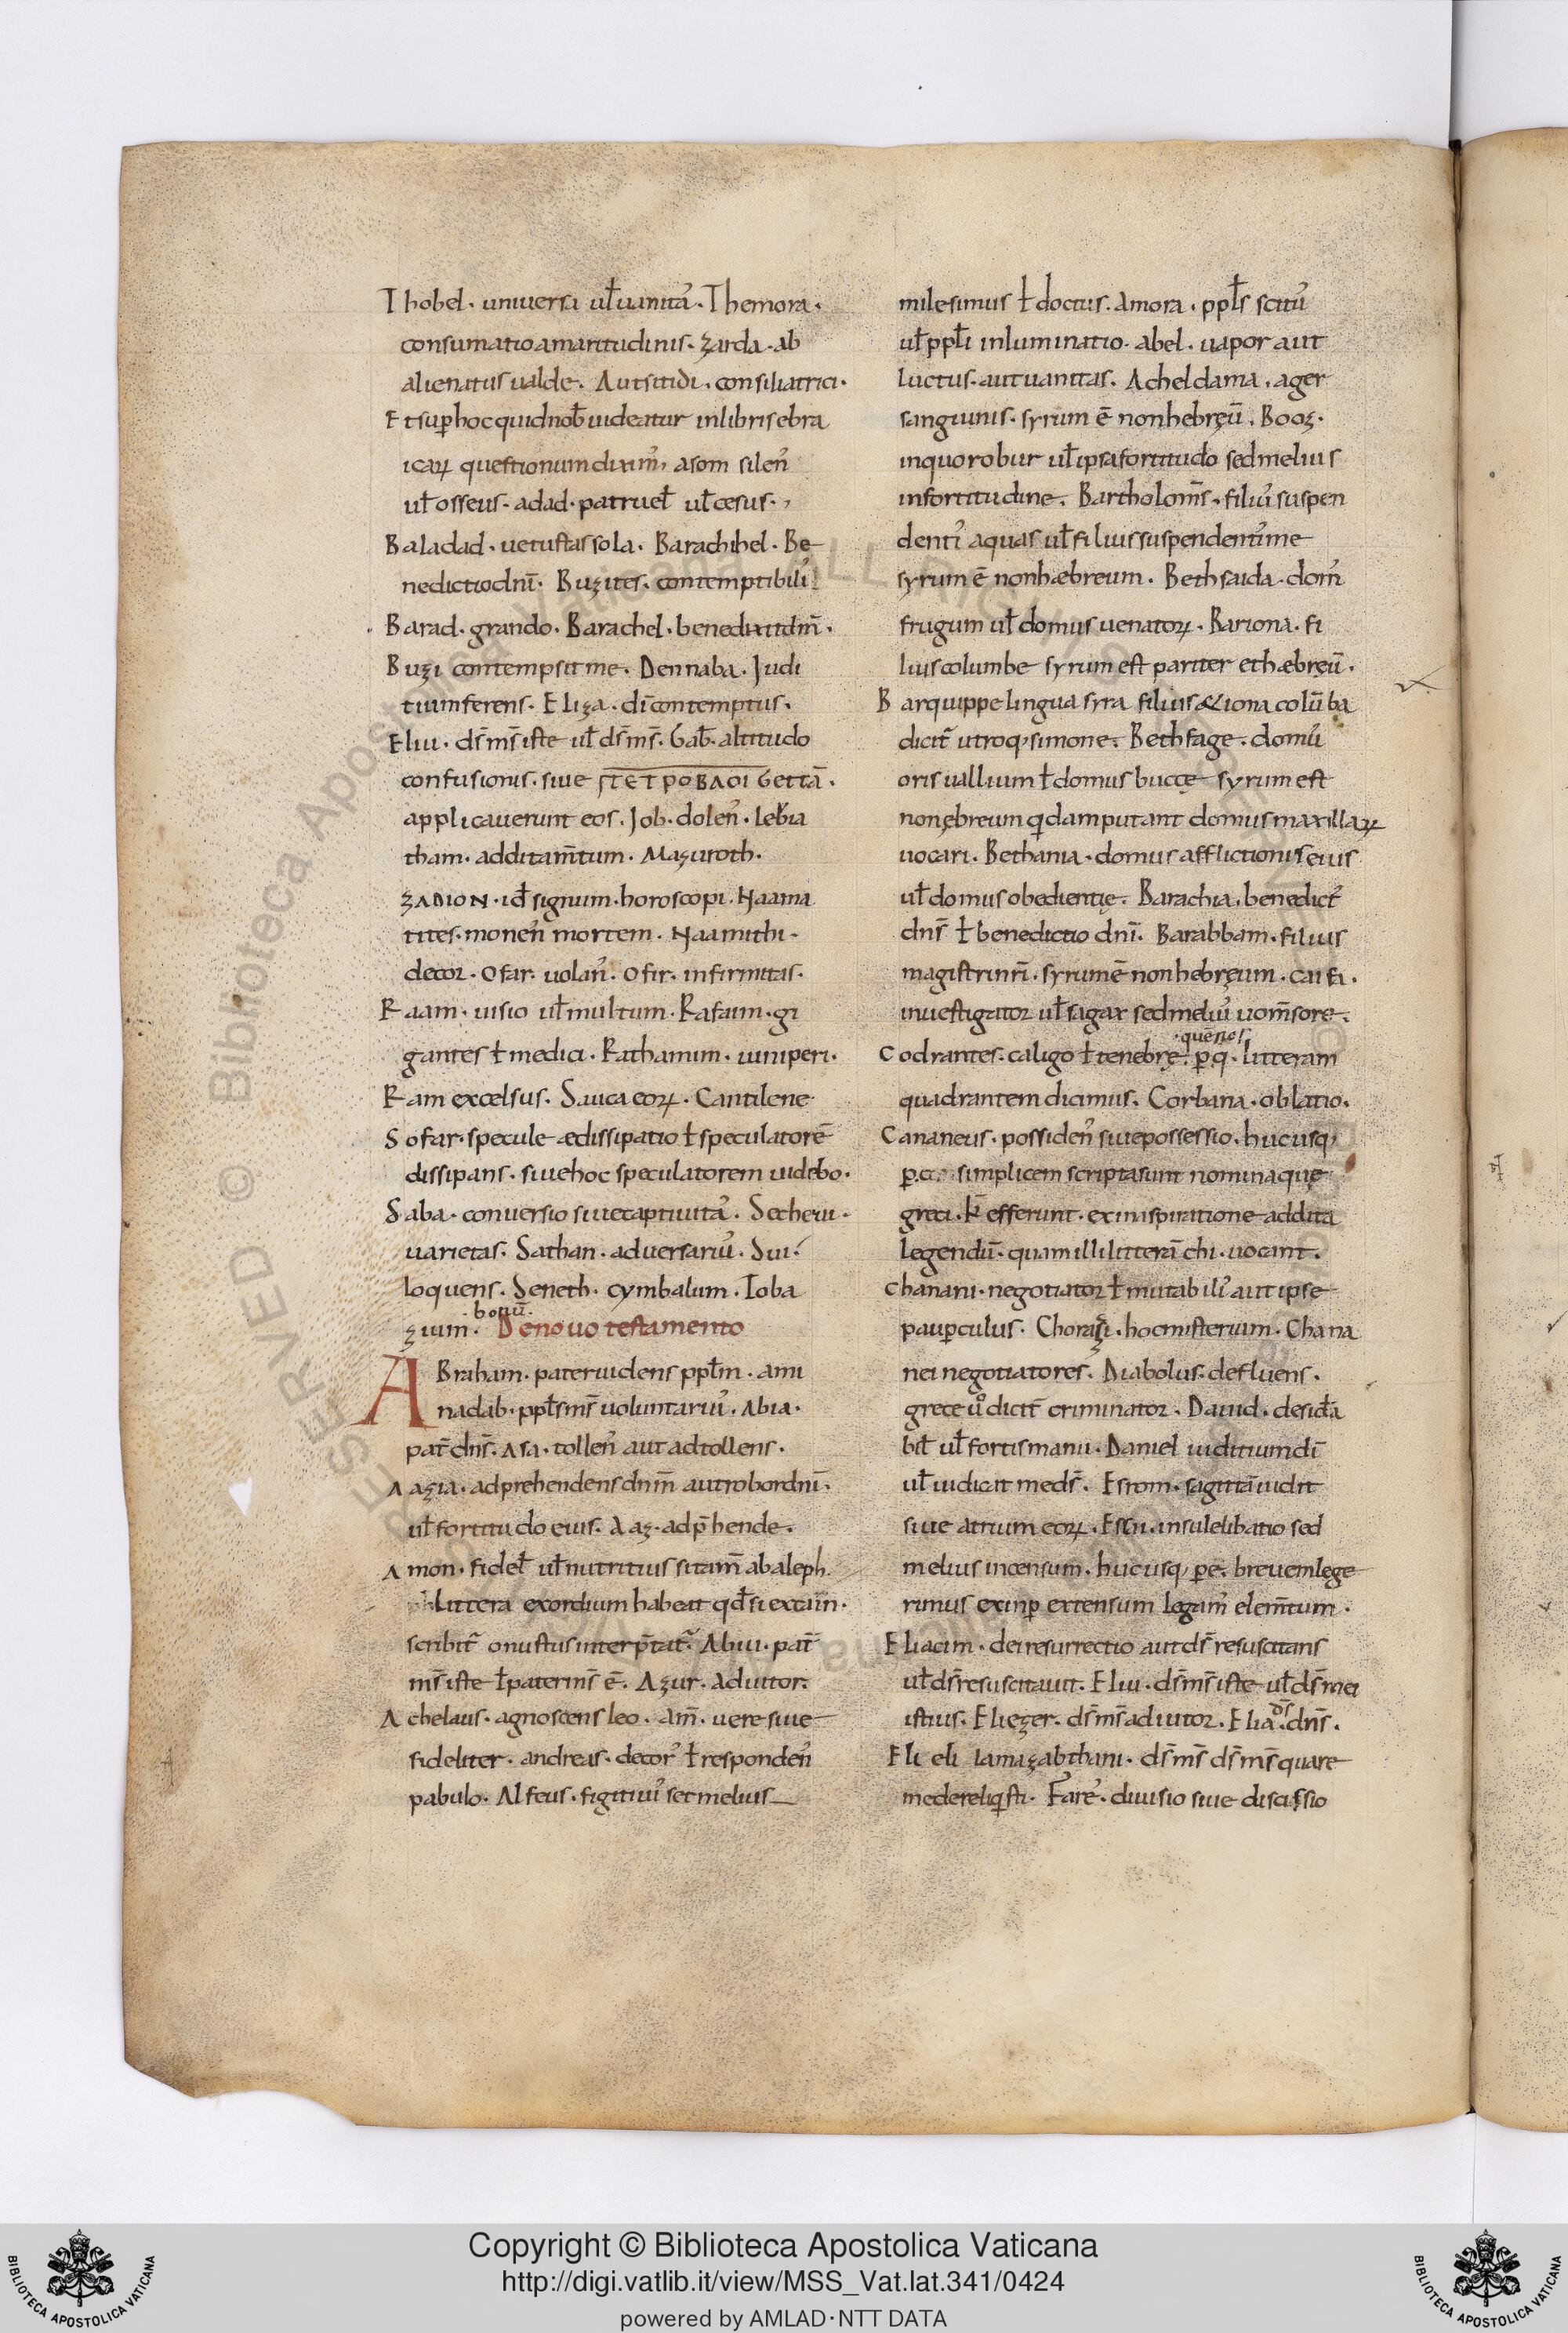 Thobel. uniuersi ul̄ uanitaſ. Themora.
consumatio amaritudinis. Zarda. ab
alienatus ualde. Autsitidi. consiliatrici.
Et sup̄ hoc quid nob̄ uideatur in libris ebra
icaꝝ questionum diximꝰ, asom silenſ
ul̄ osseus. adad. patruel̄ ul̄ cesus.,
Baladad. uetustas sola. Barachihel. Be
nedictio dnī. Buzites. contemptibiliſ
Barad. grando. Barachel. benedixit dnm̄.
Buzi contempsit me. Dennaba. Judi
tium ferens. Eliza. dī contemptus.
Eliu. ds̄ ms̄ iste ul̄ ds̄ ms̄. Gab̄. altitudo
confusionis. siue ϹΤΕΤΡΟΒΛΟΙ Gettā.
applicauerunt eos. Job. dolenſ. lebia
tham. additam̄tum. Mazuroth.
ZADION. id̄ signum. horoscopi. Naama
tites. monenſ mortem. Naamithi.
decor. Ofar. uolanſ. Ofir. infirmitas.
Raam. uisio ul̄ multum. Rafaim. gi
gantes ł medici. Rathamim. iuniperi.
Ram excelsus. Sauca eoꝝ. Cantilene
Sofar. specule ædissipatio ł speculatorē
dissipans. siue hoc speculatorem uidebo.
Saba. conuersio siue captiuitaſ. Secheiu.
uarietas. Sathan. aduersariuſ. Sui.
loquens. Seneth. cymbalum. Ioba
.bonū.
zium. De nouo testamento
ABraham. pater uidens ppl̄m. ami
nadab. ppl̄s ms̄ uoluntariuſ. Abia.
pat̄ dns̄. Asa. tollenſ aut adtollens.
Aazia. adprehendens dnm̄ aut robor dnī.
ul̄ fortitudo eius. Aaz. adp̄hende.
Amon. fidel̄ ul̄ nutritius si tam̄ ab aleph.
littera exordium habeat qd̄ si ex ain.
scribit̄ onustus interp̄tat̄. Abiu. pat̄
ms̄ iste ł pater ms̄ ē. Azur. adiutor.
Achelaus. agnoscens leo. am̄. uere siue
fideliter. andreas. decorꝰ ł respondenſ
pabulo. Alfeus. figitiuꝰ set melius
milesimus ł doctus. Amora. ppl̄s scituſ
ul̄ ppl̄i inluminatio. abel. uapor aut
luctus. aut uanitas. Acheldama. ager
sanguinis. syrum ē non hebręū. Booz.
in quo robur ul̄ ipsa fortitudo sed melius
in fortitudine. Bartholoms̄. filiuſ suspen
dentiſ aquas ul̄ filius suspendentiſ me
syrum ē non hæbreum. Bethsaida. domꝰ
frugum ul̄ domus uenatoꝝ. Bariona. fi
lius columbe syrum est pariter et hæbręū.
Bar quippe lingua syra filius & iona colūba
dicit̄ utroq; simone. Bethfage. domuſ
oris uallium ł domus buccę syrum est
non ębreum qdam putant domus maxillaꝝ
uocari. Bethania. domus afflictionis eius
ul̄ domus obedientię. Barachia. benedict̄
dns̄ ł benedictio dnī. Barabbam. filius
magistri nrī. syrum ē non hebręum. caifi.
inuestigator ul̄ sagax sed meliuſ uom̄s ore.
.quē nos
Codrantes. caligo ł tenebrę. p̄.q. litteram
quadrantem dicimus. Corbana. oblatio.
Cananeus. possidenſ siue possessio. hucusq;
p̄.c. simplicem scripta sunt nomina quę
greci. k̄ efferunt. exin aspiratione addita
legendū. quam illi litterā chi. uocant.
Chanani. negotiator ł mutabiliſ aut ipse
paup̄culus. Chorazi. hoc misterium. Chana
nei negotiatores. Diabolus. defluens.
grece ů dicit̄ criminator. Dauid. desid̄a
bil̄ ul̄ fortis manu. Daniel iuditium dī
ul̄ iudicat me ds̄. Esrom. sagittā uidit
siue atrium eoꝝ. Essu. insule libatio sed
melius incensum. hucusq; p̄ e. breuem lege
rimus exinp̄ extensum legamꝰ elem̄tum.
Eliacim. dei resurrectio aut ds̄ resuscitans
ul̄ ds̄ resuscitauit. Eliu. ds̄ ms̄ iste ul̄ ds̄ mei
istius. Eliezer. ds̄ ms̄ adiutor. Elia. ds̄ dns̄.
Eli eli lamazabthani. ds̄ ms̄ ds̄ ms̄ quare
me dereliqisti. Fareſ. diuisio siue discissio
Copyright © Biblioteca Apostolica Vaticana
http://digi.vatlib.it/view/MSS_Vat.lat.341/0424
powered by AMLAD·NTT DATA
BIBLIOTECA APOSTOLICA VATICANA
BIBLIOTECA APOSTOLICA VATICANA